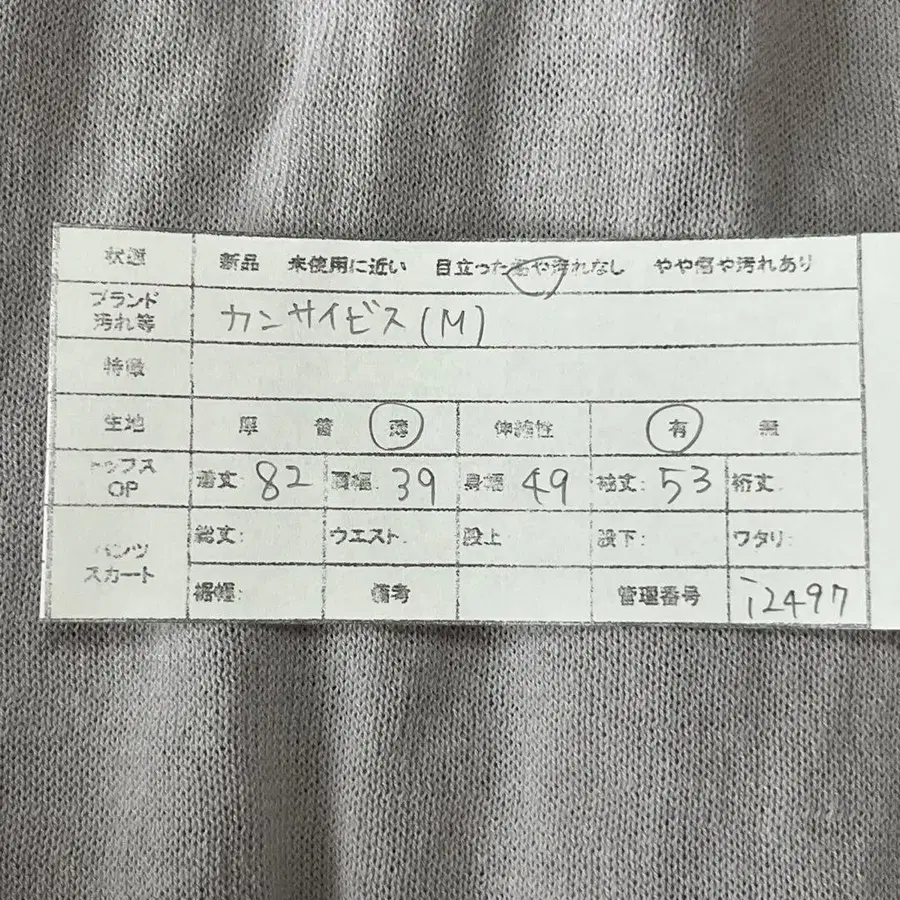 状態 新品 未使用に近い 目立った傷や汚れなし やや傷や汚れあり
ブランド
汚れ等 カンサイビス(M)
特徴
生地 厚 普 薄 伸縮性 有 無
トップス
OP 着丈: 82 肩幅: 39 身幅: 49 袖丈: 53 裄丈:
パンツ
スカート 総丈: ウエスト: 股上 股下: ワタリ:
裾幅: 備考 管理番号 i2497